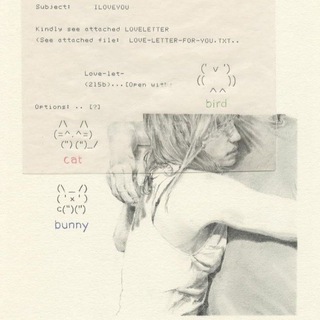 Subject: ILOVEYOU
Kindly see attached LOVELETTER
(See attached file: LOVE-LETTER-FOR-YOU.TXT..
Love-let-
(215b)...[Open with
Options: .. [?]
bird
cat
bunny